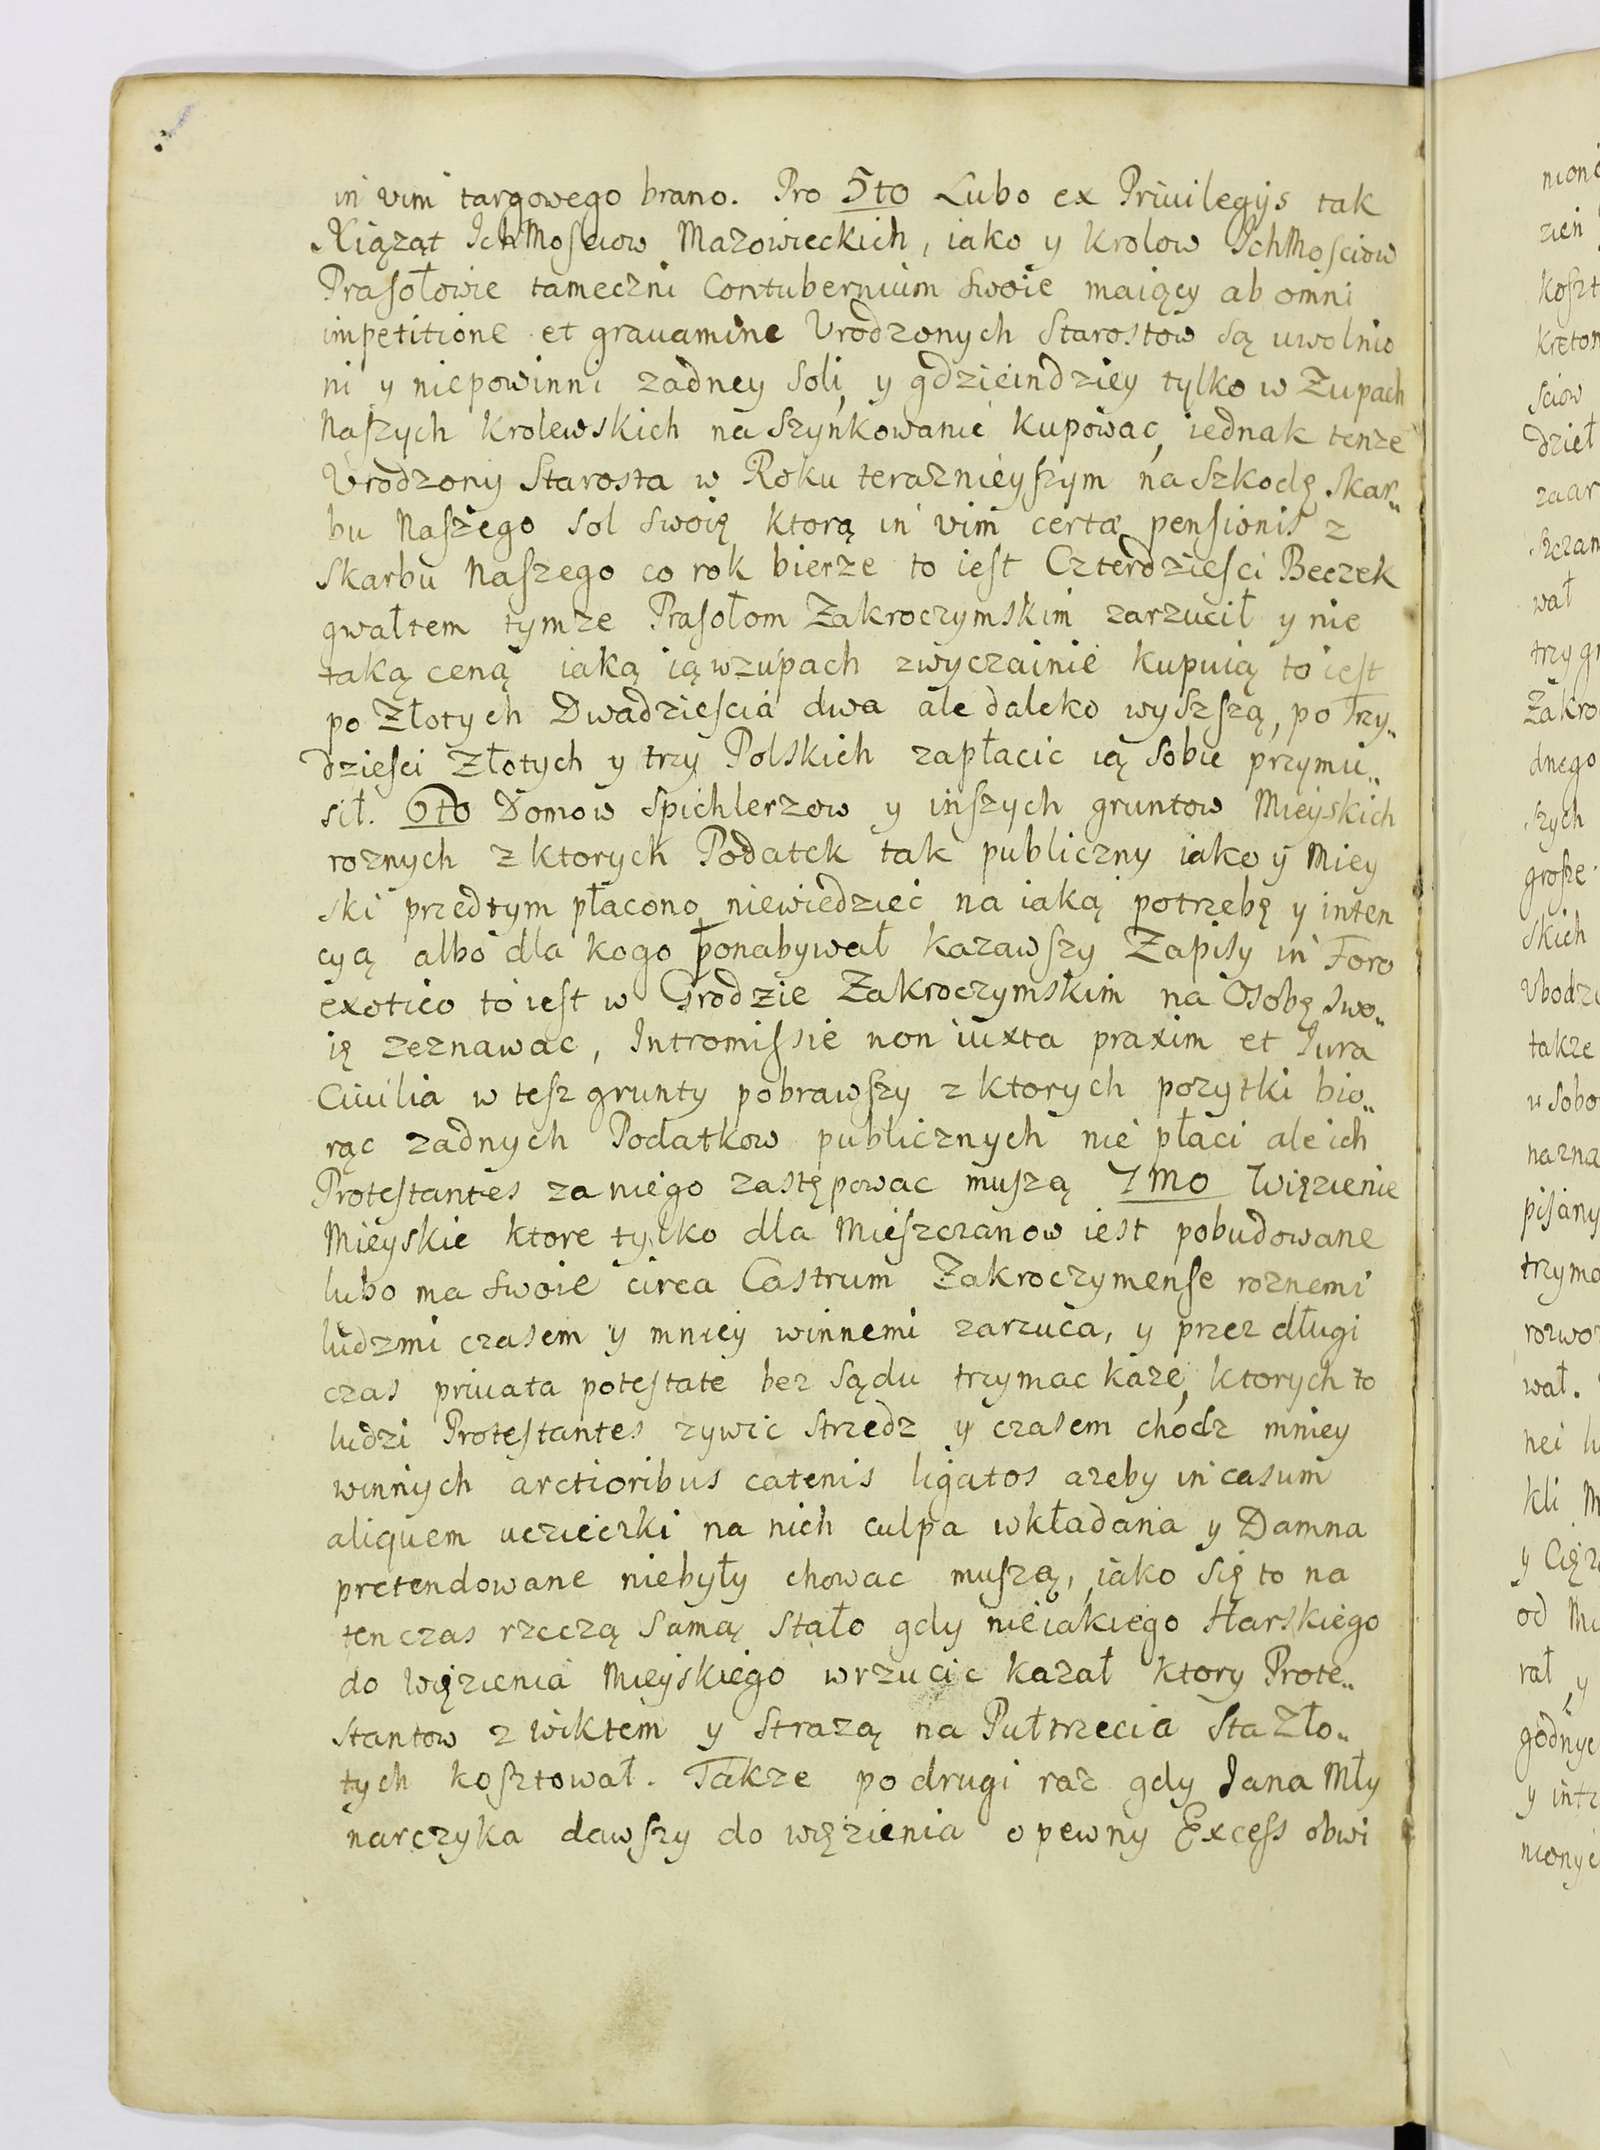 in vim targowego brano. Pro 5to Lubo ex Priuilegijs tak
Xiąząt IchMosciow Mazowieckich, iako y Krolow IchMosciow
Prasołowie tameczni Contubernium swoie maiący ab omni
impetitione et grauamine Vrodzonych Starostow są uwolnio
ni y niepowinni zadney soli, y gdzieindziey tylko w Zupach
Naszych Krolewskich na szynkowanie kupowac, iednak tenze
Vrodzony Starosta w Roku teraznieyszym na szkodę Skar„
bu Naszego sol swoię ktorą in vim certæ pensionis z
Skarbu Naszego co rok bierze to iest Czterdziesci Beczek
gwałtem tymze Prasołom Zakroczymskim zarzucił y nie
taką ceną iaką ią wzupach zwyczainie kupuią to iest
po Złotych Dwadziescia dwa ale daleko wyszszą, po Trzy„
dziesci Złotych y trzy Polskich zapłacic ią sobie przymu„
sił. 6to Domow Spichlerzow y inszych gruntow Mieyskich
roznych z ktorych Podatek tak publiczny iako y Miey
ski przedtym płacono, niewiedziec na iaką potrzebę y inten
cyą albo dla kogo ponabywał kazawszy Zapisy in Foro
exotico to iest w Grodzie Zakroczymskim na Osobę swo„
ię zeznawac, Intromissie non iuxta praxim et Iura
Ciuilia w tesz grunty pobrawszy z ktorych pozytki bio„
rąc zadnych Podatkow publicznych nie płaci ale ich
Protestantes za niego zastępowac muszą 7mo Więzienie
Mieyskie ktore tylko dla Mieszczanow iest pobudowane
lubo ma swoie circa Castrum Zakroczymense roznemi
ludzmi czasem y mniey winnemi zarzuca, y przez długi
czas priuata potestate bez sądu trzymac kaze, ktorych to
ludzi Protestantes zywic strzedz y czasem chodz mniey
winnych arctioribus catenis ligatos azeby in casum
aliquem ucziećzki na nich culpa wkładana y Damna
pretendowane niebyły chowac muszą, iako się to na
ten czas rzeczą samą stało gdy nieiakiego Harskiego
do więzienia Mieyskiego wrzucic kazał ktory Prote„
stantow z wiktem y strazą na Pułtrzecia sta Zło„
tych kosztował. Takze po drugi raz gdy Iana Mły
narczyka dawszy do więzienia o pewny Excess obwi